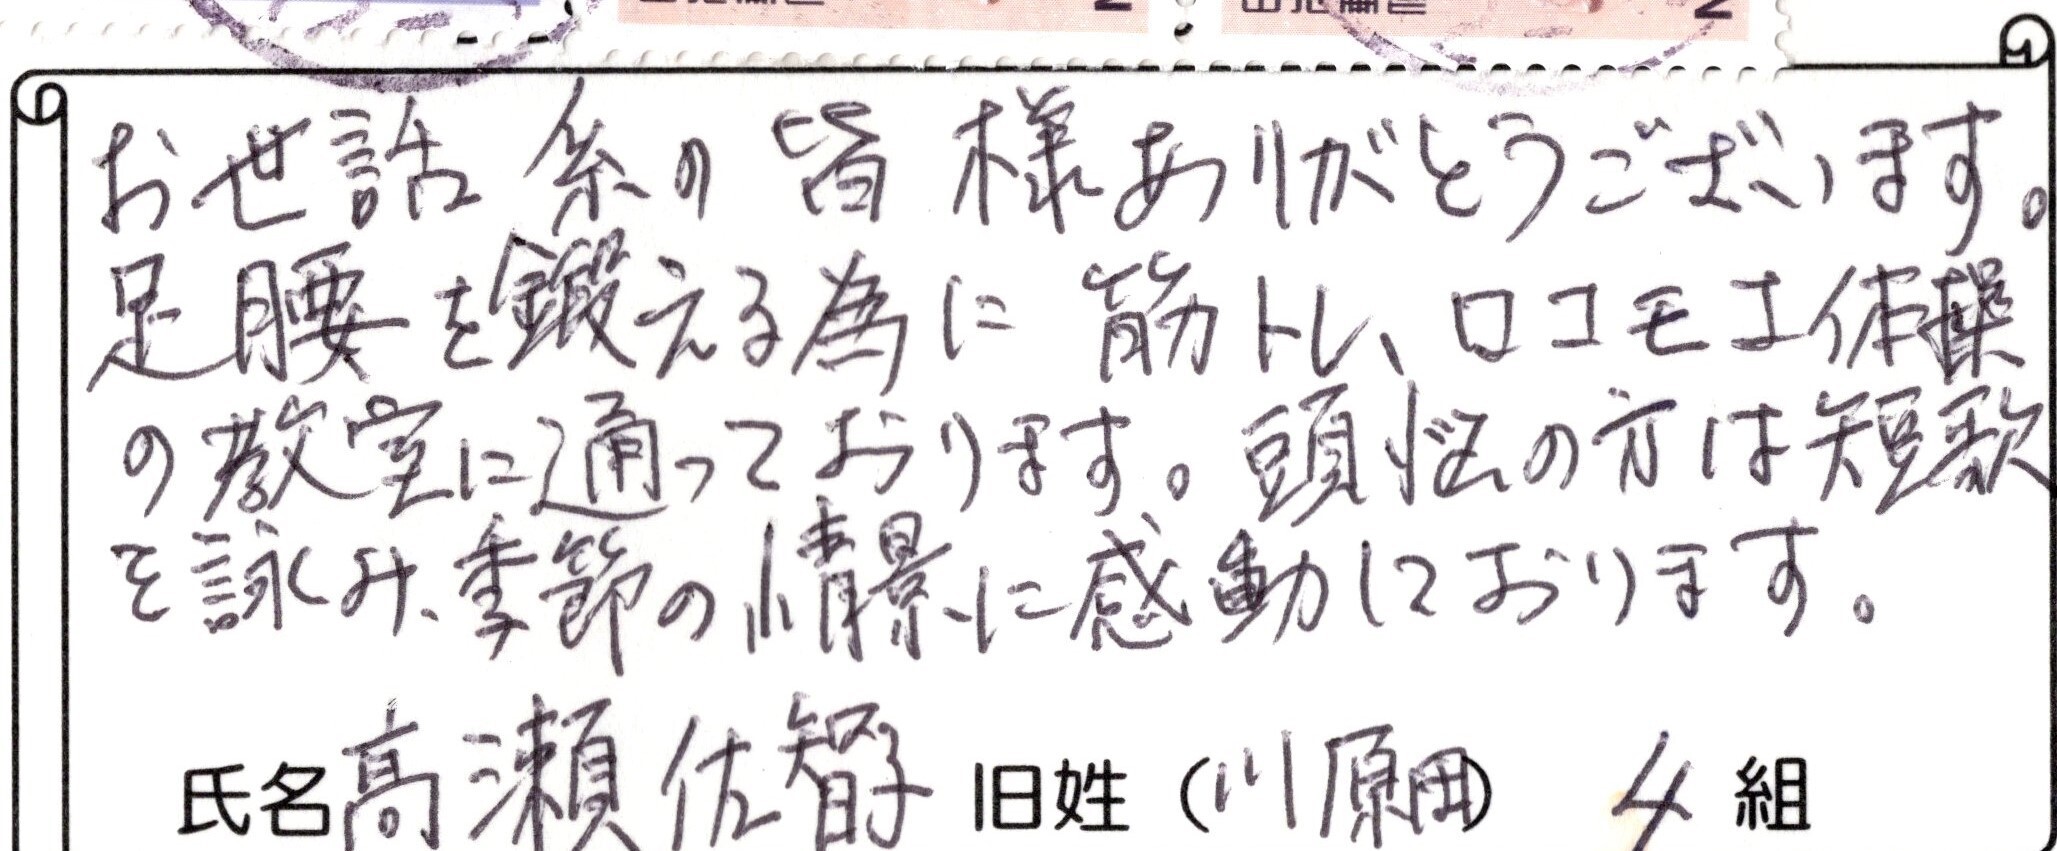 お世話系の皆様ありがとうございます。
足腰を鍛える為に筋トレ、ロコモヱ体操
の教室に通っております。頭悩の方は短歌
を詠くみ、季節の情景に感動しております。
氏名 高瀬佐智子 旧姓（川原田） 4 組